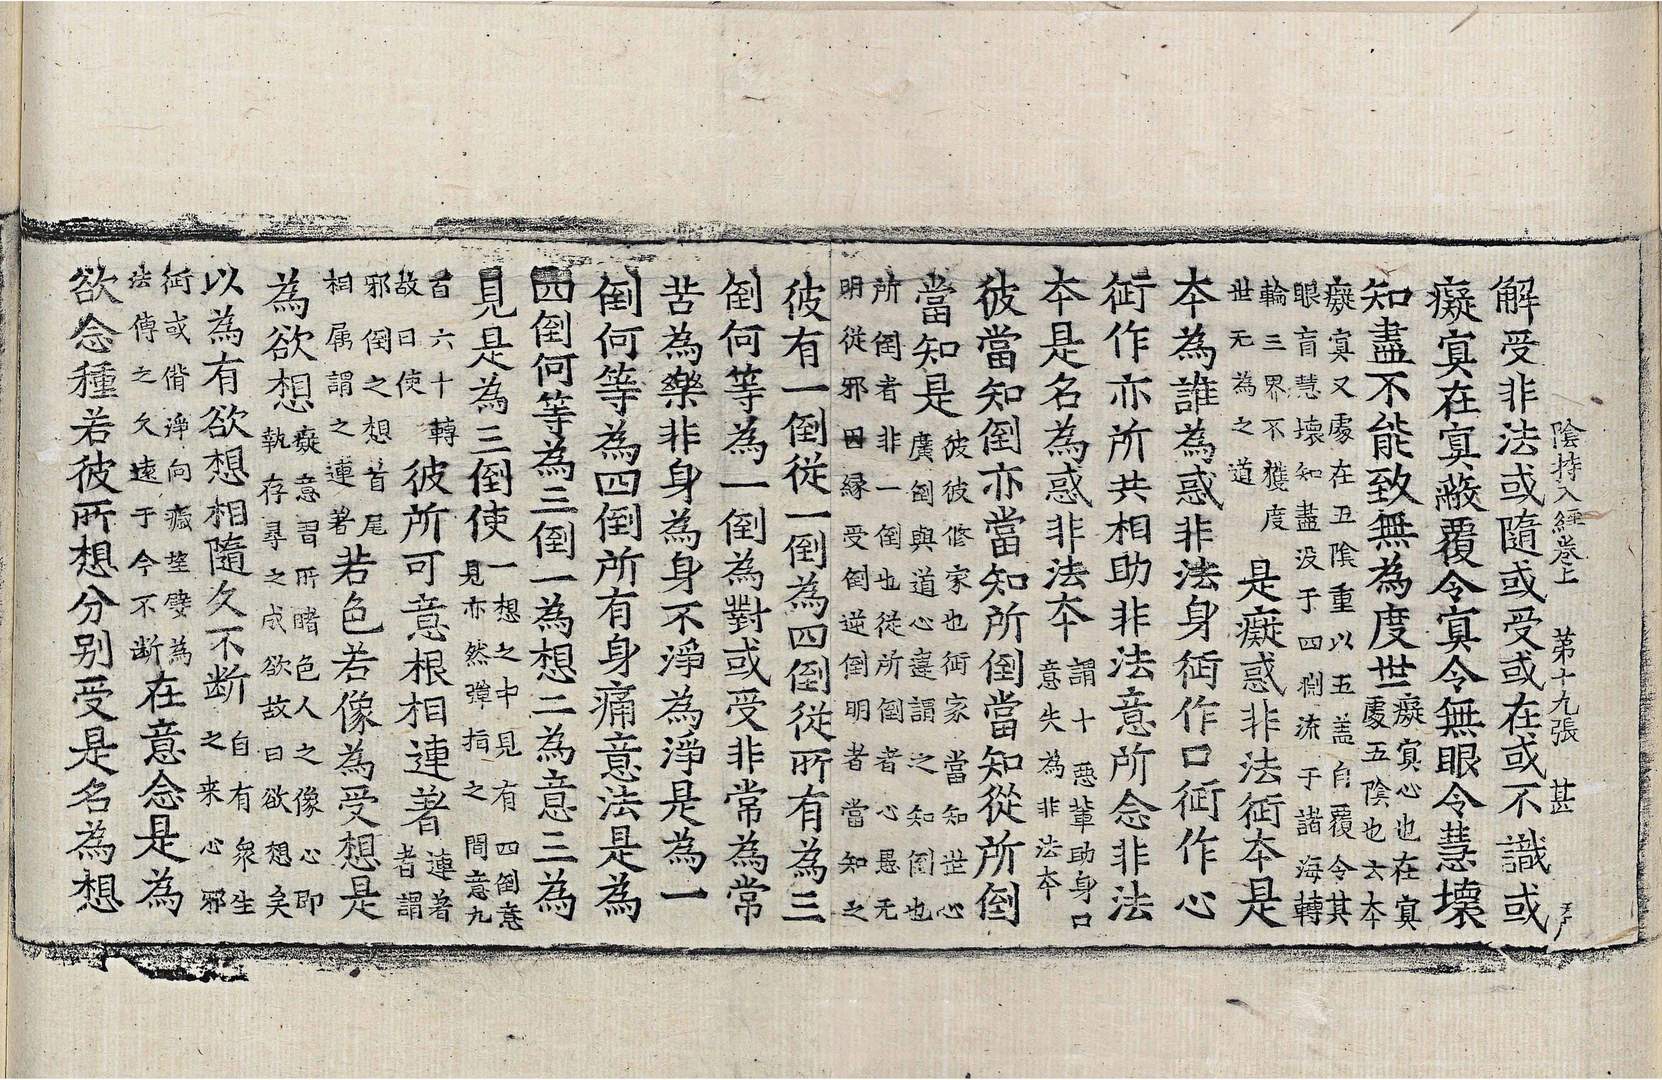 陰持入經卷上　第十九張　甚
解受非法或隨或受或在或不識或
癡㝠在㝠蔽覆令㝠令無眼令慧壞
知盡不能致無為度世癡㝠心也在㝠處五陰也六本
癡㝠又處在丑陰重以五盖自覆令其眼盲慧壞知盡没于四渕流于諸海轉
輪三界不獲度世无為之道　是癡惑非法𧗪本是
本為誰為惑非法身𧗪作口𧗪作心
𧗪作亦所共相助非法意所念非法
本是名為惑非法本謂十惡輩助身口意失為非法本
彼當知倒亦當知所倒當知從所倒
當知是彼彼修家也𧗪家當知世心廣倒與道心違謂之知倒也
所倒者非一倒也從所倒者心愚无明從邪因緣受倒逆倒明者當知之
彼有一倒從一倒為四倒從所有為三
倒何等為一倒為對或受非常為常
苦為樂非身為身不淨為淨是為一
倒何等為四倒所有身痛意法是為
四倒何等為三倒一為想二為意三為
見是為三倒使一想之中見有四倒意見亦然彈指之間意九
百六十轉故曰使　彼所可意根相連著連著者謂
邪倒之想首尾相属謂之連著若色若像為受想是
為欲想癡意習所睹色人之像心即執存尋之成欲故曰欲想矣
以為有欲想相隨久不断自有衆生之来心邪
𧗪或偕淨向癡埿躄為法傳之久遠于今不断在意念是為
欲念種若彼所想分別受是名為想